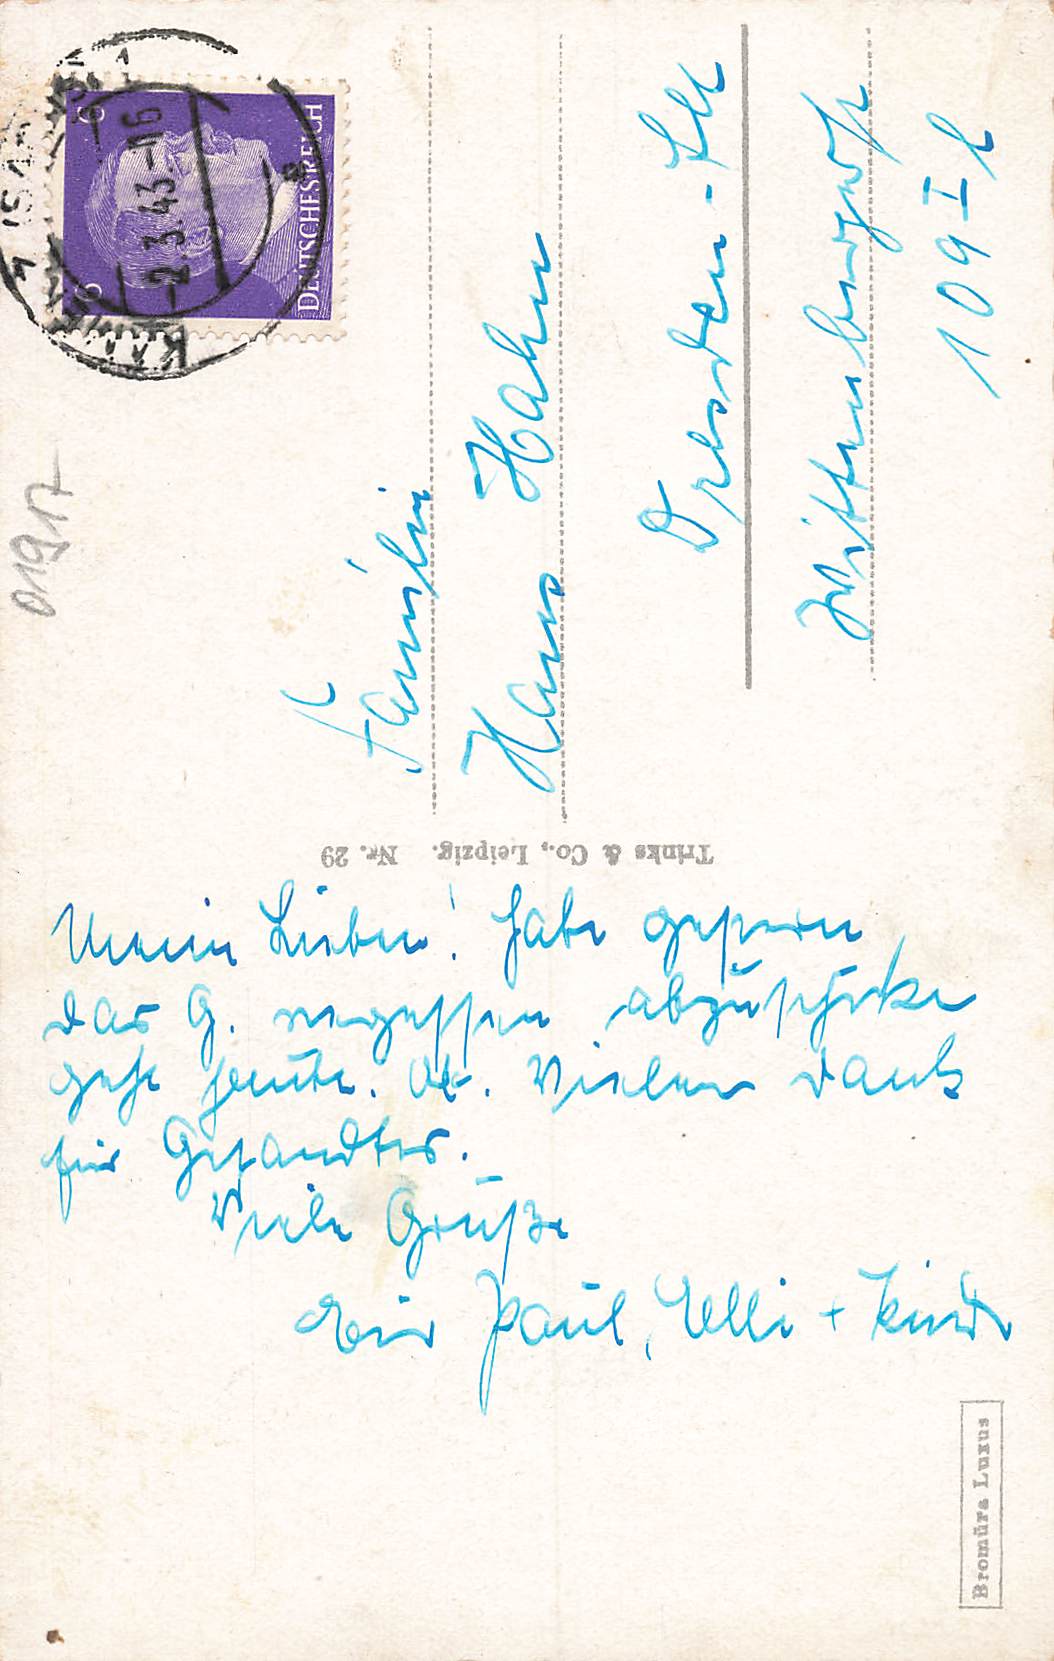 Meine Lieben! Habe gestern
das G. vergessen abzuschicken
geht heute. ab. Vielen Dank
für Gesandtes.
Viele Grüße
Eure Paul, Elli + Kinder
Familie
Hans Hahn
Dresden-
Wittenbergerstr
109 I
Trinks & Co., Leipzig. Nr. 29
Bromüra Luxus
DEUTSCHES REICH
6 6
-2.3.43-16
01917